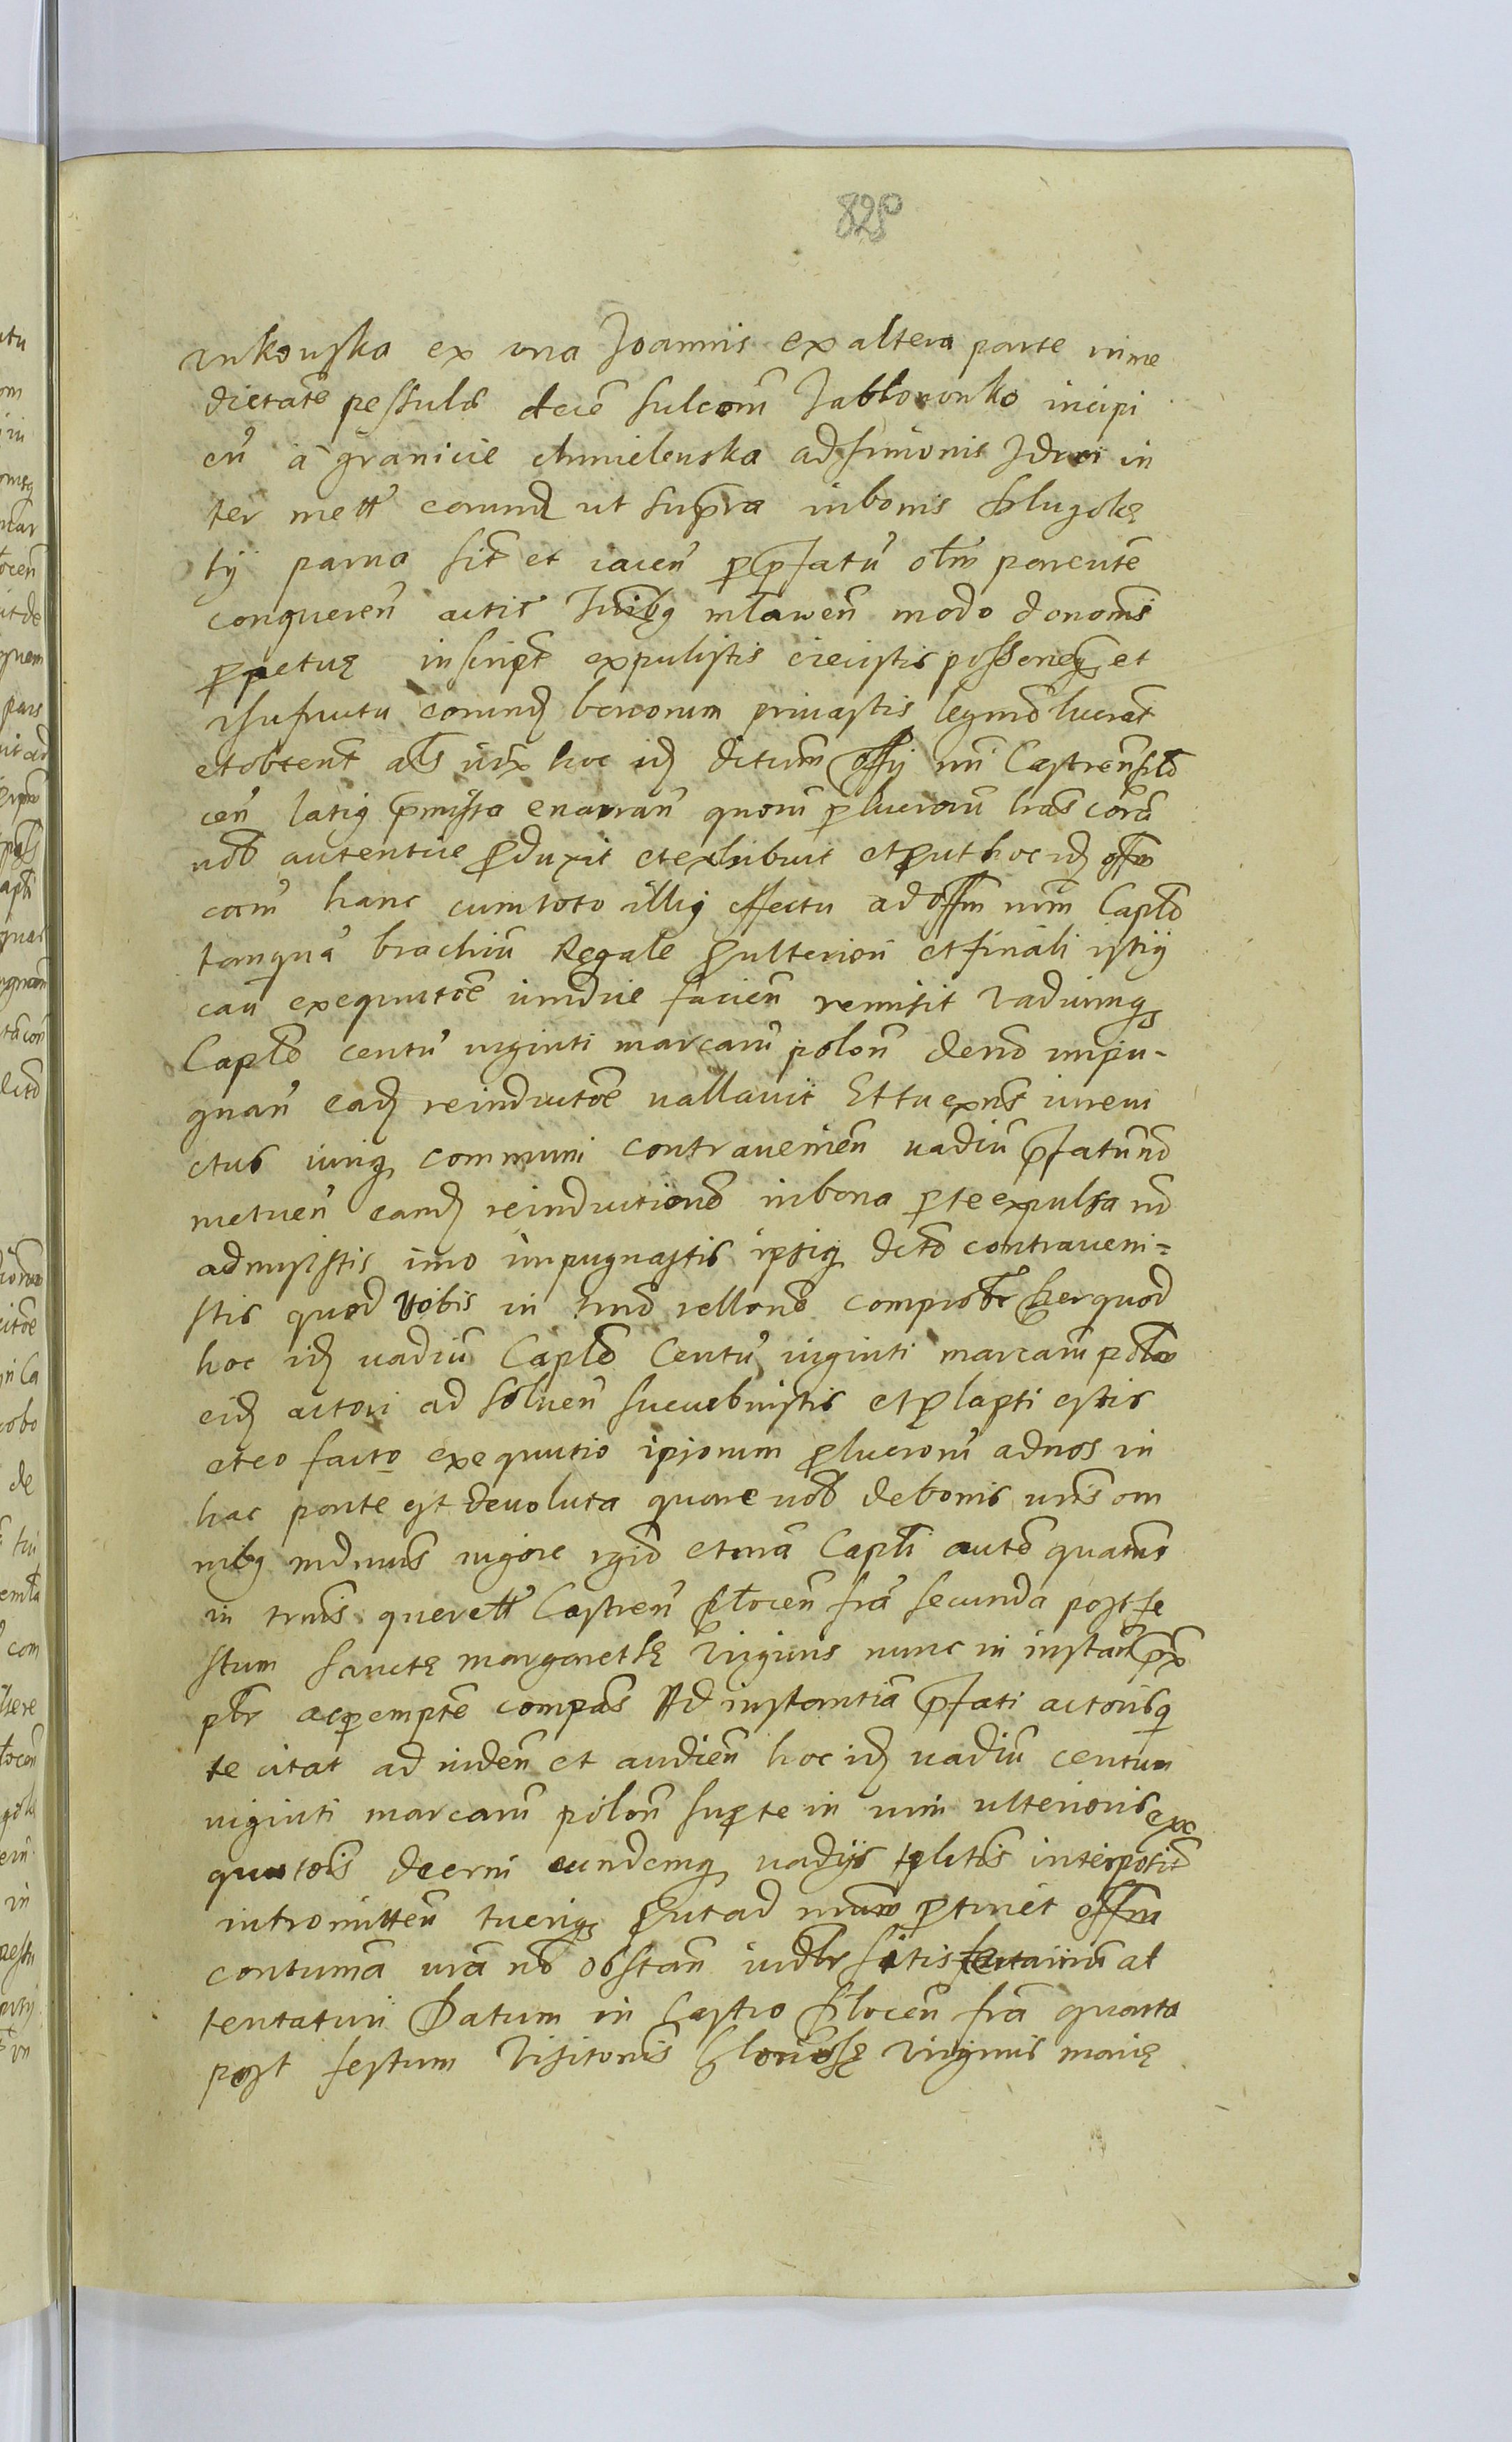 825
unkowska ex una Joannis ex altera parte imme
dietate pessulis decem sulcorum Jabłonowko incipi
en a granicie chmielewska ad Simonis Zdroi in
ter mett eorund ut supra in bonis Dlugole
ty parva sit et iacen p pfatu olim parente
conqueren actis Trib mlawen modo dononis
ppetuę inscript expulistis eiecistis possoneq et
usufructu eorund bonorum privastis legmo lucrat
et obtent als iux hoc id ditum offy nri Castren Plo
cen latiq pmissa enarran quorum p lucrorum lras cora
nob autentice pduxit et exhibuit et put hoc id offm
eam hanc cum toto illiq effectu ad offm nrm Capłe
tanqua brachiu Regale p ulteriori et finali istiq
cau exequutoe iuridice facien remisit vadiumq
Capłe centu viginti marcaru polon deno impu-
gnan ead reinductoe vallavit Et tu exns iurevi
ctus iuriq communi contravenien vadiu pfatu no
metuen eand reinductione in bona p te expulsa no
admisistis imo impugnastis ipsiq dicto contraveni=
stis quod vobis in tmo rellone comprobr per quod
hoc id vadiu Capłe Centu viginti marcaru polo
eid actori ad solven sucubuistis et plapti estis
et eo facto exequutio ipsorum plucroru ad nos in
hac parte est devoluta quare vob de bonis vris om
nibq mdmus vigore rgio et nra Capłi aute quatus
in trmis querett Castren Płocen fra secunda post fe
stum Sanctę Margarethę virginis nunc in instan px
ptr ac pempte compas Ad instantia pfati actoris q
te citat ad viden et audien hoc id vadiu centum
viginti marcaru polon sup te in vim ulterioris exe
quutois decerni eundemq vadys tplitis interposit
intromitten tueriq put ad nrum ptinet offm
contuma vra no obstan iudlr sitis termin at
tentaturi Datum in Castro Płocen fra quarta
post festum Visitonis Gloriosę Virginis Marię